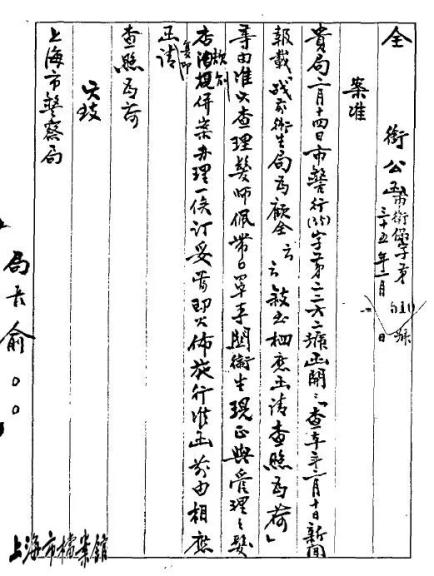 全銜公函 市衛保字第 號
三十五年二月 日
案准
貴局二月十四日市警行(35)字第二二六二號函開：「查本年二月十日新聞
報載『践市衛生局為顧全云云』敍至相應函請查照為荷」
等由准此查理髮師佩帶口罩事關衛生現正與管理理髮
店規則併案办理一俟订妥當即公佈施行准函前由相應
函復即請
查照為荷
此致
上海市警察局
局長俞○○
上海市檔案館